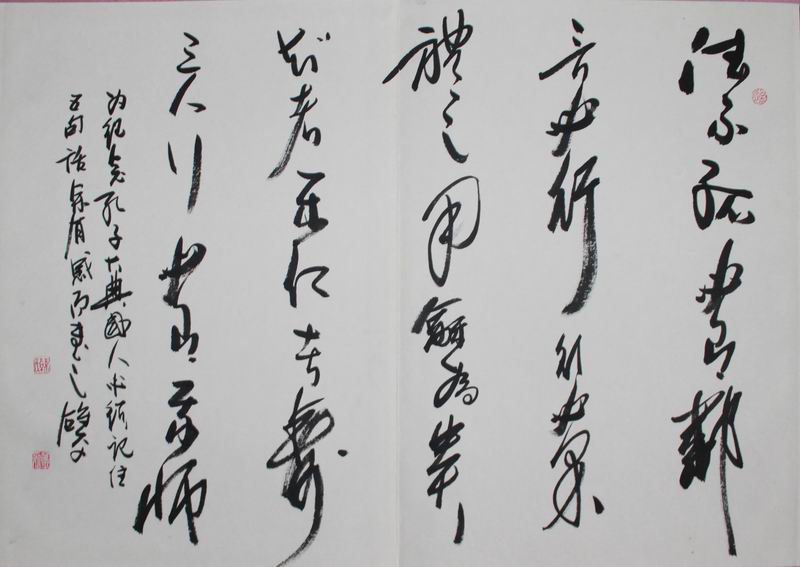 德不孤必有鄰
言必行行必果
禮之用龢為貴
知者乐仁者壽
三人行必有我師
为紀念孔子大典國人必須記住
五句話余有感而书之